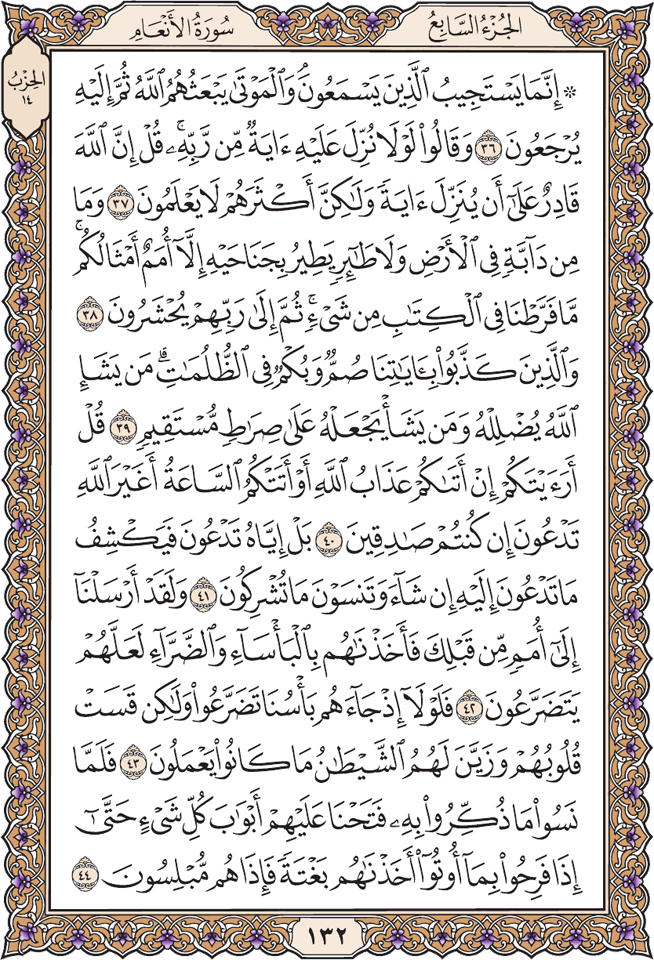 الجزء السابع
سورة الأنعام
الحزب
١٤
۞ إِنَّمَا يَسْتَجِيبُ ٱلَّذِينَ يَسْمَعُونَۘ وَٱلْمَوْتَىٰ يَبْعَثُهُمُ ٱللَّهُ ثُمَّ إِلَيْهِ
يُرْجَعُونَ ٣٦ وَقَالُوا۟ لَوْلَا نُزِّلَ عَلَيْهِ ءَايَةٌ مِّن رَّبِّهِۦۚ قُلْ إِنَّ ٱللَّهَ
قَادِرٌ عَلَىٰٓ أَن يُنَزِّلَ ءَايَةً وَلَـٰكِنَّ أَكْثَرَهُمْ لَا يَعْلَمُونَ ٣٧ وَمَا
مِن دَآبَّةٍ فِى ٱلْأَرْضِ وَلَا طَـٰٓئِرٍ يَطِيرُ بِجَنَاحَيْهِ إِلَّآ أُمَمٌ أَمْثَالُكُمۚ
مَّا فَرَّطْنَا فِى ٱلْكِتَـٰبِ مِن شَىْءٍۚ ثُمَّ إِلَىٰ رَبِّهِمْ يُحْشَرُونَ ٣٨
وَٱلَّذِينَ كَذَّبُوا۟ بِـَٔايَـٰتِنَا صُمٌّ وَبُكْمٌ فِى ٱلظُّلُمَـٰتِۗ مَن يَشَإِ
ٱللَّهُ يُضْلِلْهُ وَمَن يَشَأْ يَجْعَلْهُ عَلَىٰ صِرَٰطٍ مُّسْتَقِيمٍ ٣٩ قُلْ
أَرَءَيْتَكُمْ إِنْ أَتَىٰكُمْ عَذَابُ ٱللَّهِ أَوْ أَتَتْكُمُ ٱلسَّاعَةُ أَغَيْرَ ٱللَّهِ
تَدْعُونَ إِن كُنتُمْ صَـٰدِقِينَ ٤٠ بَلْ إِيَّاهُ تَدْعُونَ فَيَكْشِفُ
مَا تَدْعُونَ إِلَيْهِ إِن شَآءَ وَتَنسَوْنَ مَا تُشْرِكُونَ ٤١ وَلَقَدْ أَرْسَلْنَآ
إِلَىٰٓ أُمَمٍ مِّن قَبْلِكَ فَأَخَذْنَـٰهُم بِٱلْبَأْسَآءِ وَٱلضَّرَّآءِ لَعَلَّهُمْ
يَتَضَرَّعُونَ ٤٢ فَلَوْلَآ إِذْ جَآءَهُم بَأْسُنَا تَضَرَّعُوا۟ وَلَـٰكِن قَسَتْ
قُلُوبُهُمْ وَزَيَّنَ لَهُمُ ٱلشَّيْطَـٰنُ مَا كَانُوا۟ يَعْمَلُونَ ٤٣ فَلَمَّا
نَسُوا۟ مَا ذُكِّرُوا۟ بِهِۦ فَتَحْنَا عَلَيْهِمْ أَبْوَٰبَ كُلِّ شَىْءٍ حَتَّىٰٓ
إِذَا فَرِحُوا۟ بِمَآ أُوتُوٓا۟ أَخَذْنَـٰهُم بَغْتَةً فَإِذَا هُم مُّبْلِسُونَ ٤٤
١٣٢